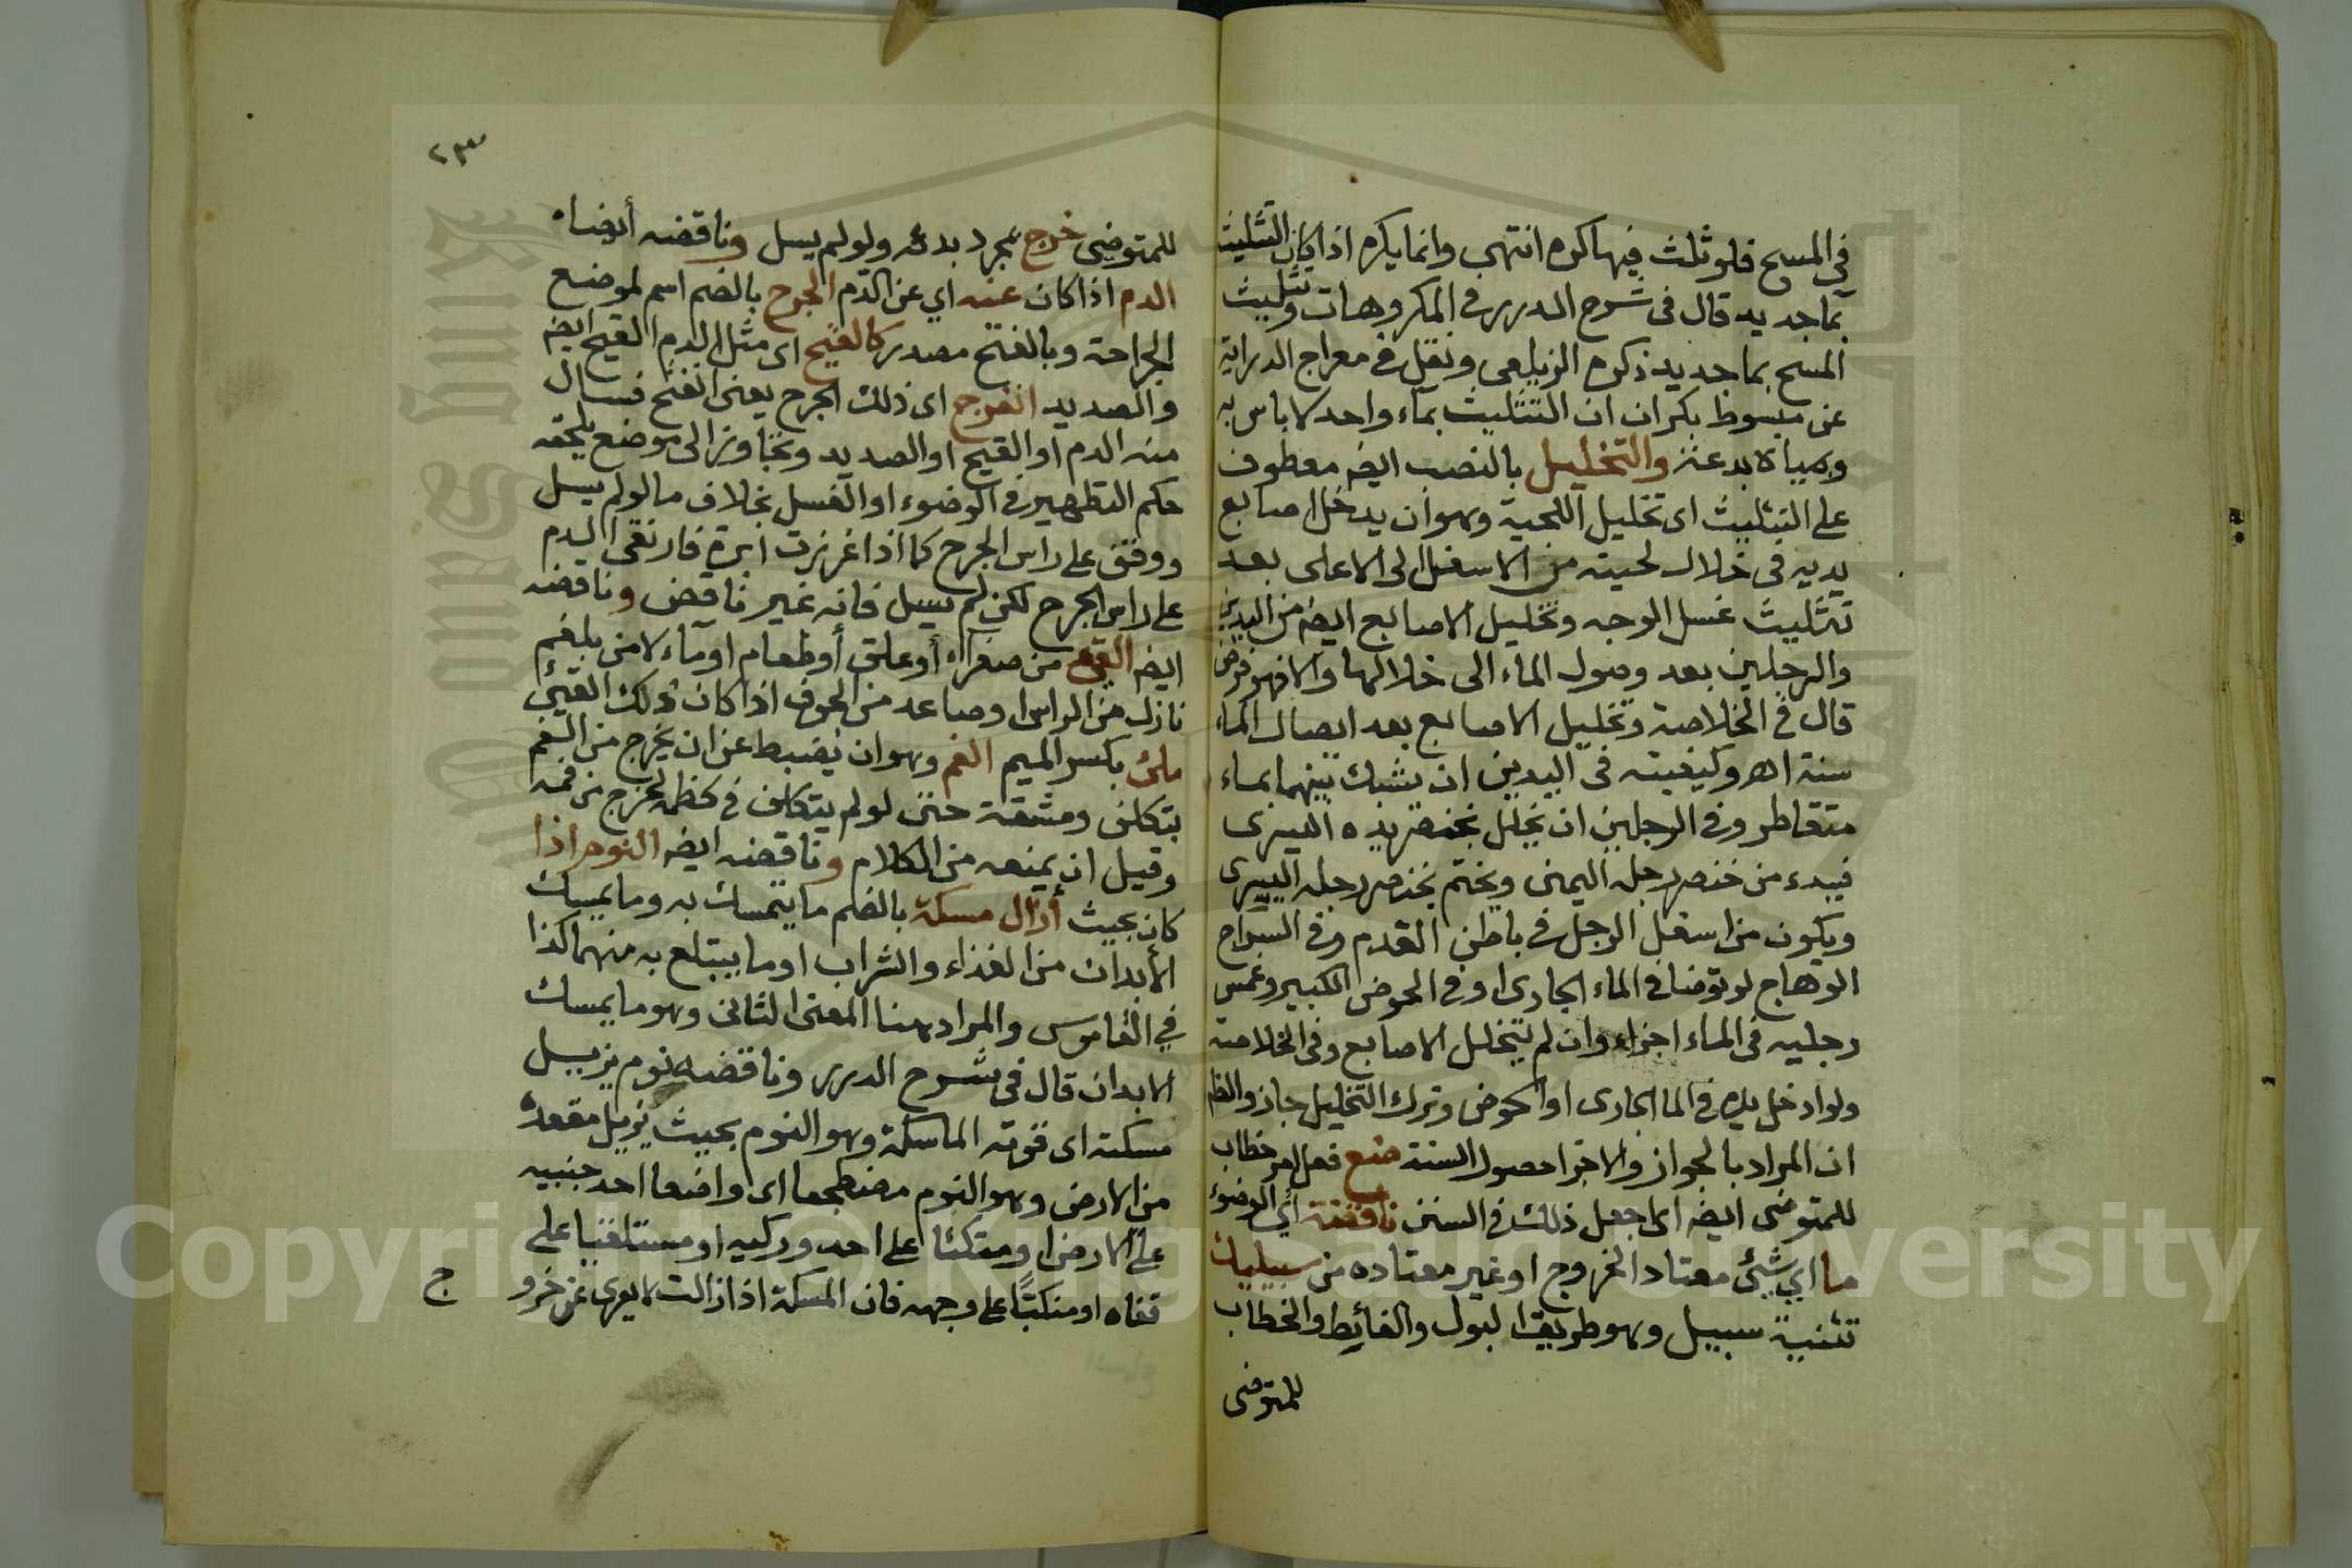 في المسح فلو ثلث فيها كره انتهى وانما يكره اذا كان التثليث
بما جديد قال في شرح الدرر في المكروهات وتثليث
المسح بما جديد ذكره الزيلعي ونقل في معراج الدراية
عن مبسوط بكر ان ان التثليث بماء واحد لا باس به
والتخليل بالنصب ايضه معطوف
على التثليث اى تخليل اللحية وهو ان يدخل اصابع
يديه في خلال لحيته من الاسفل الى الاعلى بعد
تثليث غسل الوجه وتخليل الاصابع ايضه من اليدين
والرجلين بعد وصول الماء الى خلالها والا فهو فرض
قال في الخلاصة وتخليل الاصابع بعد ايصال الماء
سنة اهـ وكيفيته في اليدين ان يشبك بينهما بماء
متقاطر وفي الرجلين ان يخلل بخنصر يده اليسرى
فيبدء من خنصر رجله اليمنى ويختم بخنصر رجله اليسرى
ويكون من اسفل الرجل في باطن القدم وفي السراج
الوهاج لو توضا في الماء الجارى او في الحوض الكبير وغمس
رجليه في الماء اجزاء وان لم يتخلل الاصابع وفي الخلاصة
ولو ادخل يده في الما الجارى او الحوض وترك التخليل جاز والظ
ان المراد بالجواز والاجزا حصول السنة ضع فعل امر خطاب
للمتوضى ايضه اى اجعل ذلك في السنن ناقضة اي الوضوء
ما اي شئ معتاد الخروج او غير معتاده من سبيليك
تثنية سبيل وهو طريق البول والغائط والخطاب
للمتوضى
٢٣
للمتوضى خرج بمجرد بدئه ولو لم يسل وناقضه أيضاه
الدم اذا كان عنه اي عن الدم الجرح بالضم اسم لموضع
الجراحة وبالفتح مصدر كالقيح اى مثل الدم القيح ايضه
والصديد انفرج اى ذلك الجرح يعنى انفتح فسال
منه الدم او القيح او الصديد وتجاوز الى موضع يلحقه
حكم التطهير في الوضوء او الغسل بخلاف ما لو لم يسل
ووقف على راس الجرح كما اذا غرزت ابرة فارتقى الدم
على راس الجرح لكن لم يسل فانه غير ناقض وناقضه
ايضه القئ من صفراء أو علق أو طعام او ماء لا من بلغم
نازل من الراس او صاعد من الجوف اذا كان ذلك القيئ
ملئ بكسر الميم الفم وهو ان يضبط عن ان يخرج من الفم
بتكلف ومشقة حتى لو لم يتكلف في كظمه لخرج من فمه
وقيل ان يمنعه من الكلام وناقضه ايضه النوم اذا
كان بحيث أزال مسكة بالضم ما يتمسك به وما يمسك
الأبدان من الغذاء والشراب او ما يبتلع به منهما كذا
في القاموس والمراد هنا المعنى الثانى وهو ما يمسك
الابدان قال في شرح الدرر وناقضه نوم يزيل
مسكته اى قوته الماسكة وهو النوم بحيث يزيل مقعده
من الارض وهو النوم مضطجعا اى واضعا احد جنبيه
على الارض او متكئا على احد وركيه او مستلقيا على
قفاه او منكبًّا على وجهه فان المسكة اذا زالت لا يعرى عن خرو
ج